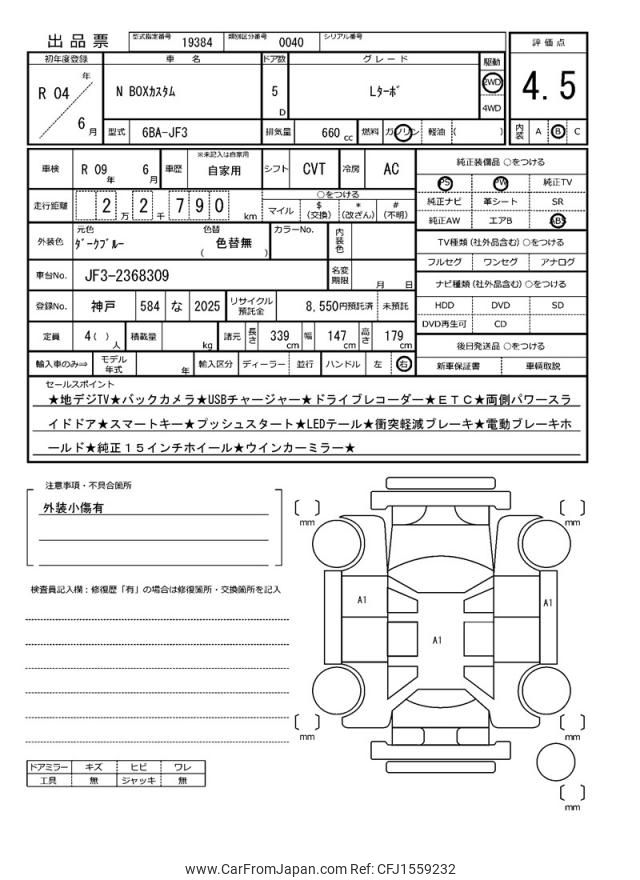 出品票 型式指定番号 19384 類別区分番号 0040 シリアル番号
初年度登録 車 名 ドア数 グレード 駆動 評価点
R 04 年 6 月 N BOXカスタム 5 D Lターボ 2WD 4WD 4.5
型式 6BA-JF3 排気量 660 cc 燃料 ガソリン 軽油 ( ) 内装 A B C
車検 R 09 年 6 月 車歴 ※未記入は自家用 自家用 シフト CVT 冷房 AC 純正装備品 ○をつける
PS PW 純正TV
走行距離 2 万 2 千 7 9 0 km ○をつける 純正ナビ 革シート SR
マイル $ (交換) * (改ざん) # (不明) 純正AW エアB ABS
外装色 元色 ダークブルー 色替 色替無 ( ) カラーNo. 内装色 TV種類 (社外品含む) ○をつける
フルセグ ワンセグ アナログ
車台No. JF3-2368309 名変期限 月 日 ナビ種類 (社外品含む) ○をつける
登録No. 神戸 584 な 2025 リサイクル預託金 8,550円預託済 未預託 HDD DVD SD
DVD再生可 CD
定員 4( ) 人 積載量 kg 諸元 長さ 339 cm 幅 147 cm 高さ 179 cm 後日発送品 ○をつける
輸入車のみ⇒ モデル年式 年 輸入区分 ディーラー 並行 ハンドル 左 右 新車保証書 車輌取説
セールスポイント
★地デジTV★バックカメラ★USBチャージャー★ドライブレコーダー★ETC★両側パワースラ
イドドア★スマートキー★プッシュスタート★LEDテール★衝突軽減ブレーキ★電動ブレーキホ
ールド★純正15インチホイール★ウインカーミラー★
注意事項・不具合箇所
外装小傷有
検査員記入欄：修復歴「有」の場合は修復箇所・交換箇所を記入
[ ] mm [ ] mm
A1 A1 A1
[ ] mm [ ] mm
[ ] mm
ドアミラー キズ ヒビ ワレ
工具 無 ジャッキ 無
www.CarFromJapan.com Ref: CFJ1559232